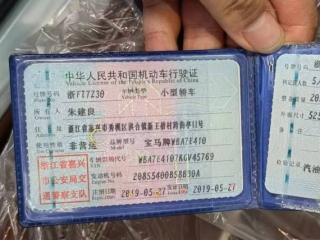 中华人民共和国机动车行驶证
Vehicle License of the People's Republic of China
号牌号码 浙FT7230 车辆类型 Vehicle Type 小型轿车
所有人 朱建良
住址 浙江省嘉兴市秀洲区洪合镇新王桥村
使用性质 非营运 品牌型号 宝马牌WBA7E410
浙江省嘉兴市公安局交通警察支队
车辆识别代号 VIN WBA7E4107KGV45769
发动机号码 20855400B58B30A
注册日期 2019-05-27 发证日期 2019-05-27